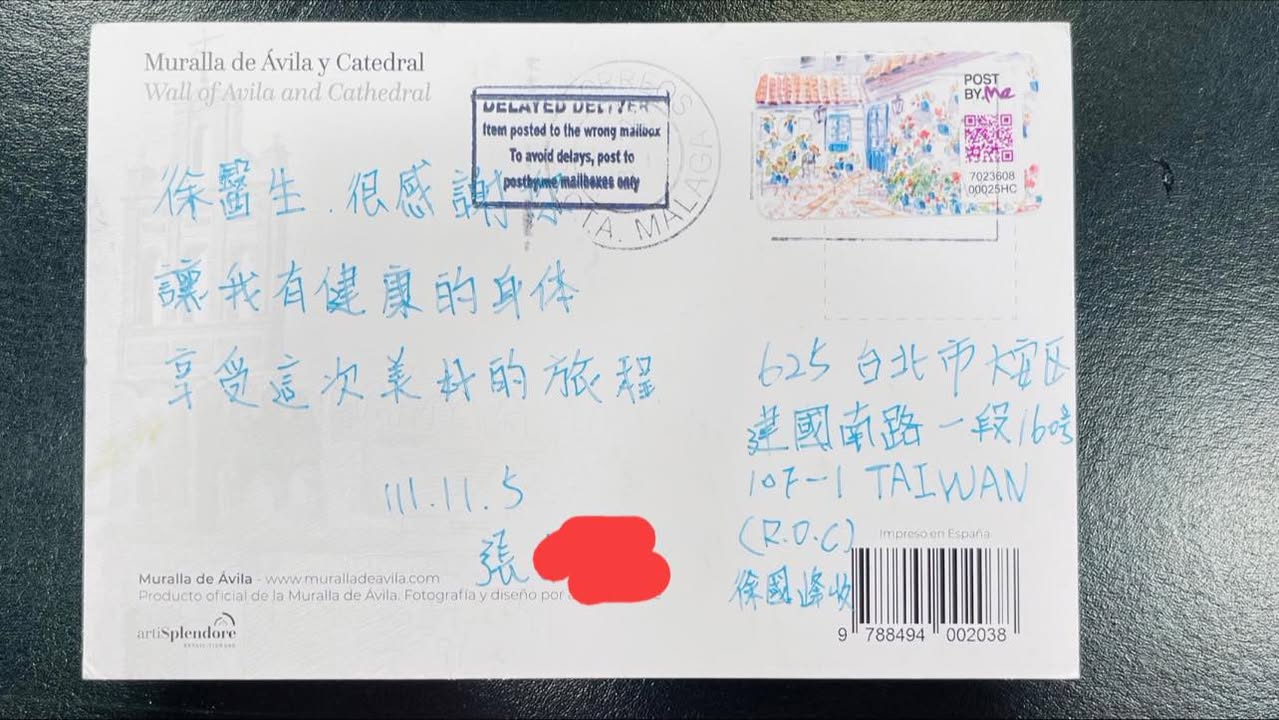 Muralla de Ávila y Catedral
Wall of Avila and Cathedral
DELAYED DELIVER
Item posted to the wrong mailbox
To avoid delays, post to
postbyme mailboxes only
CORREOS
T.A. MALAGA
POST
BY.Me
7023608
00025HC
徐醫生.很感謝你
讓我有健康的身体
享受這次美好的旅程
111.11.5
張
625 台北市大安區
建國南路一段160号
10F-1 TAIWAN
(R.O.C)
徐國峰收
Impreso en España
9 788494 002038
Muralla de Ávila - www.muralladeavila.com
Producto oficial de la Muralla de Ávila. Fotografía y diseño por
artiSplendore